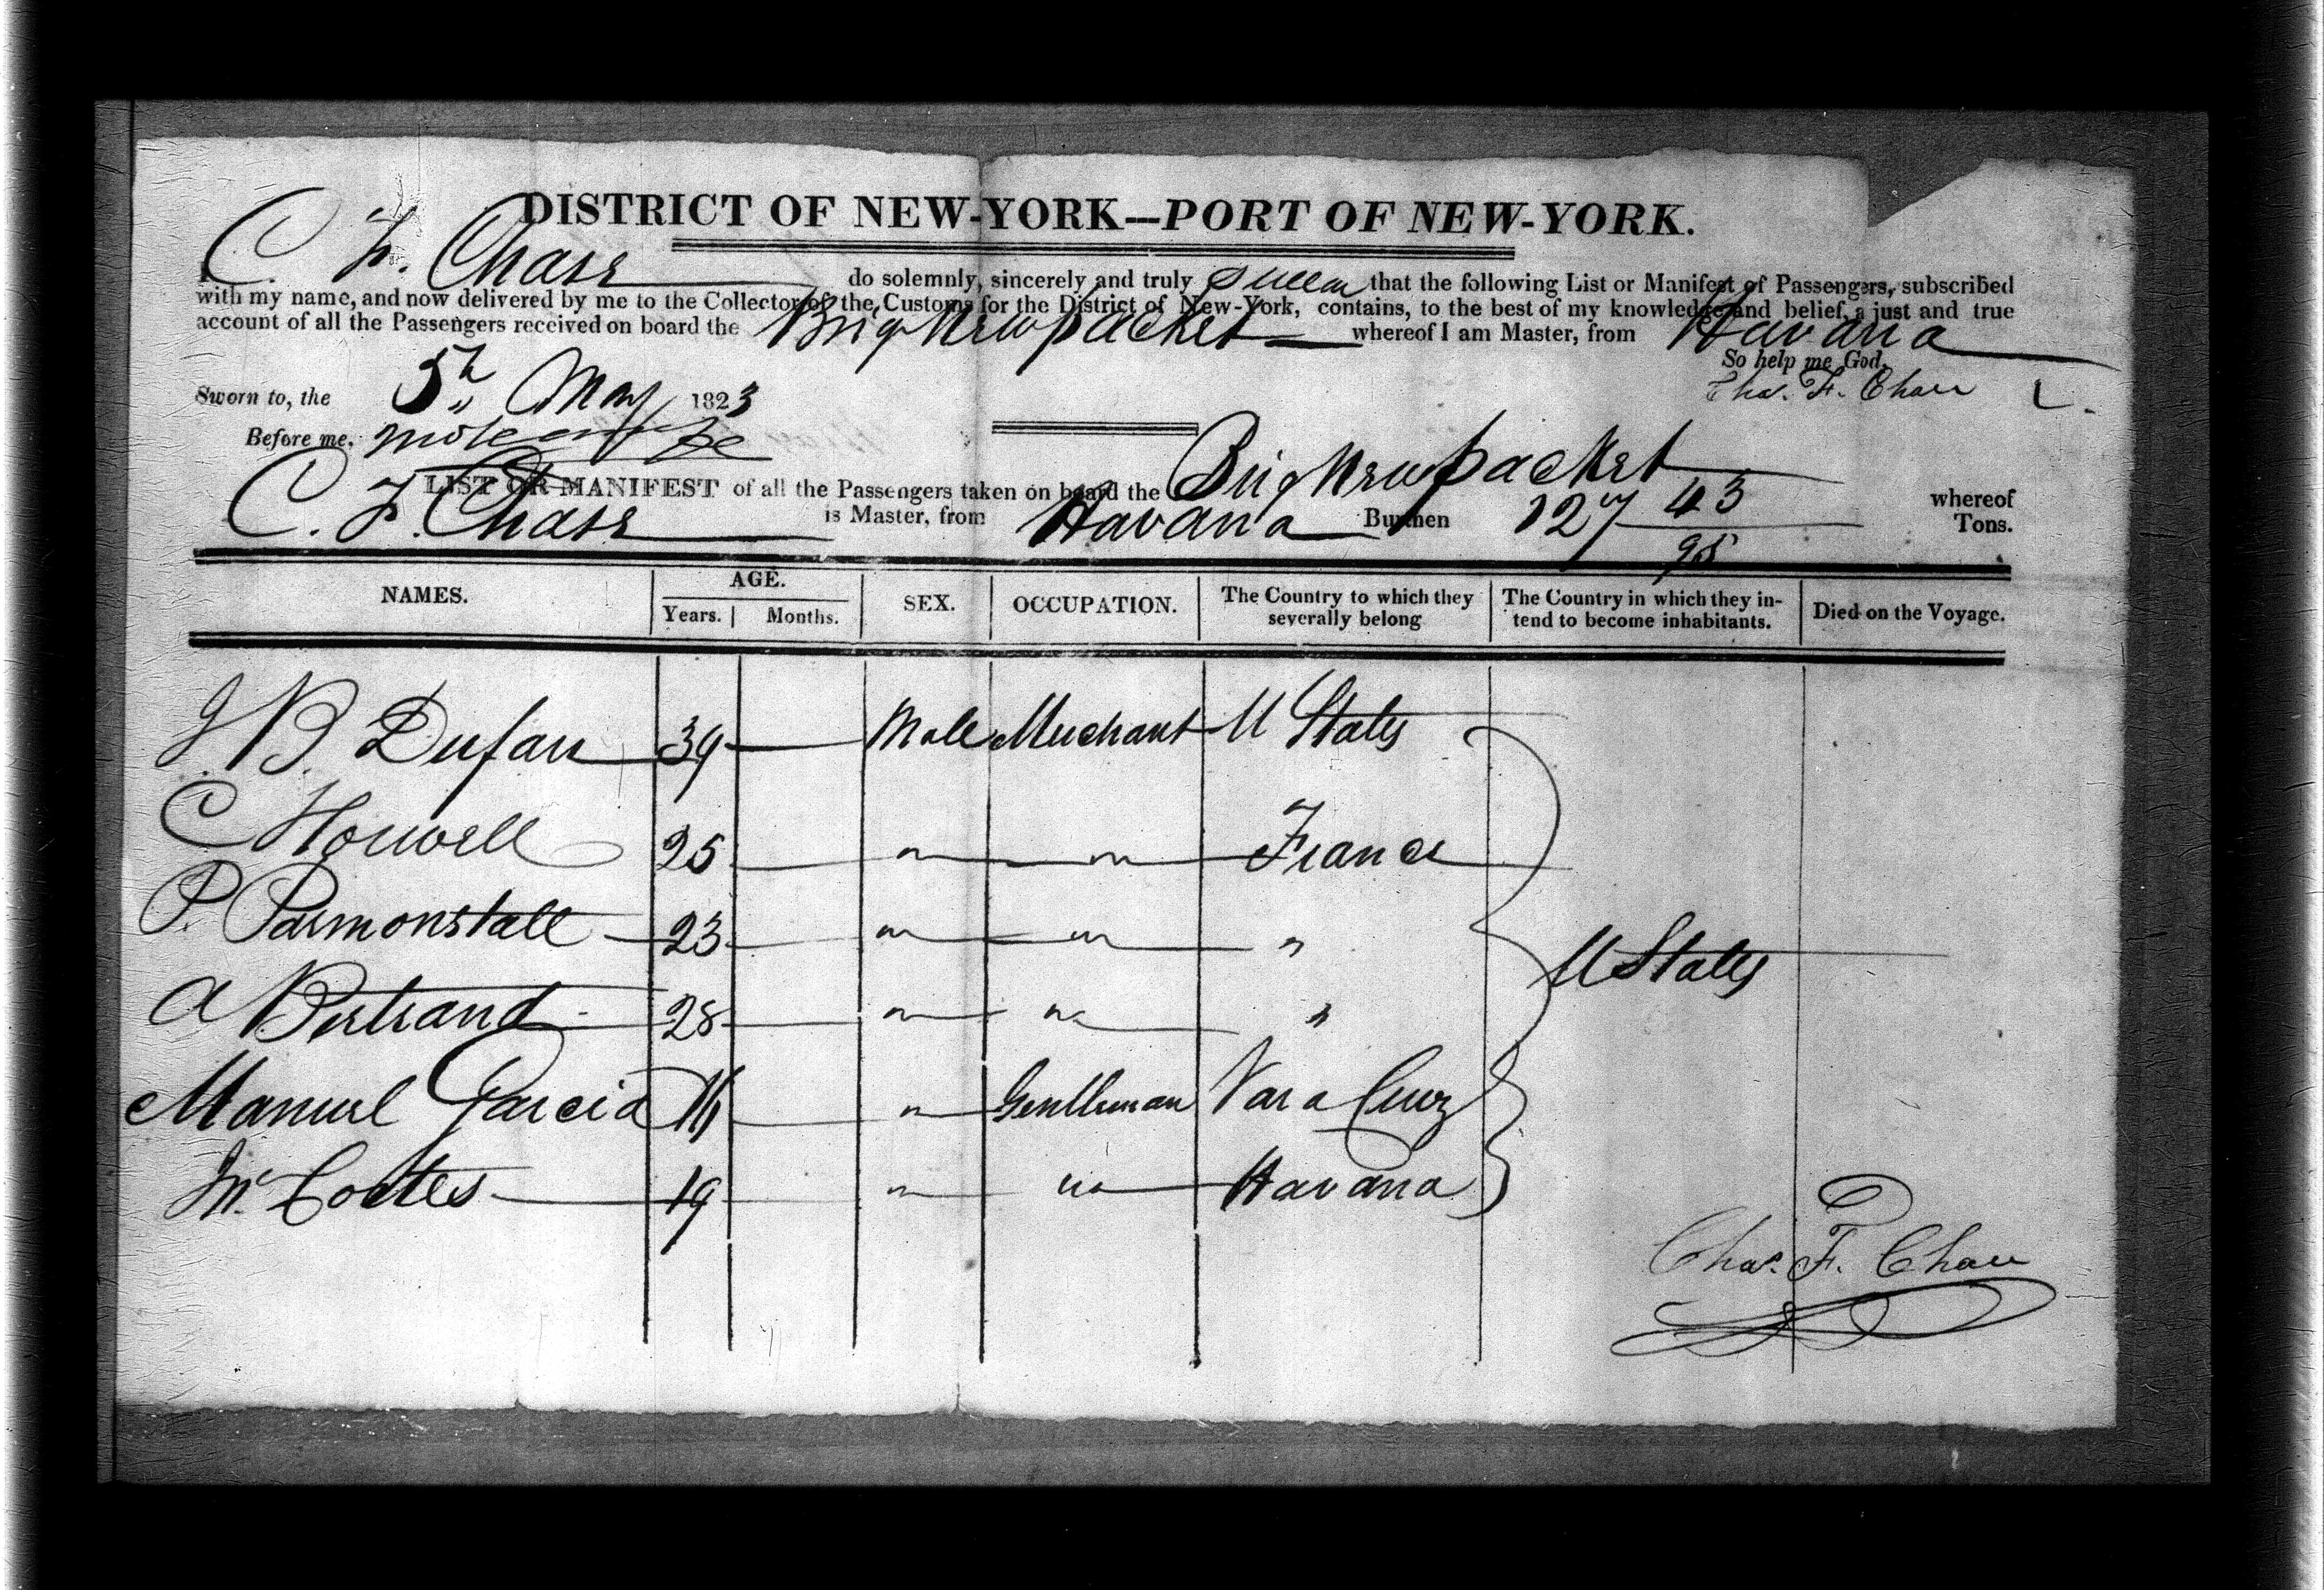 DISTRICT OF NEW-YORK—PORT OF NEW-YORK.
I C. F. Chase do solemnly, sincerely and truly swear that the following List or Manifest of Passengers, subscribed
with my name, and now delivered by me to the Collector of the Customs for the District of New-York, contains, to the best of my knowledge and belief, a just and true
account of all the Passengers received on board the Brig New packet whereof I am Master, from Havana
So help me God.
Sworn to, the 5th May 1823
Chas. F. Chase
Before me,
LIST OR MANIFEST of all the Passengers taken on board the Brig New packet whereof
C. F. Chase is Master, from Havana Burthen 127 43/95 Tons.
NAMES. AGE. Years. Months. SEX. OCCUPATION. The Country to which they severally belong The Country in which they intend to become inhabitants. Died on the Voyage.
J. B. Dufau 39 Male Merchant U States
C Horwell 25 " " France
P. Parmonstall 23 " " "
U States
A Bertrand 28 " " "
Manuel Garcia 16 " Gentleman Vara Cruz
Coctes 19 " " Havana
Chas. F. Chase